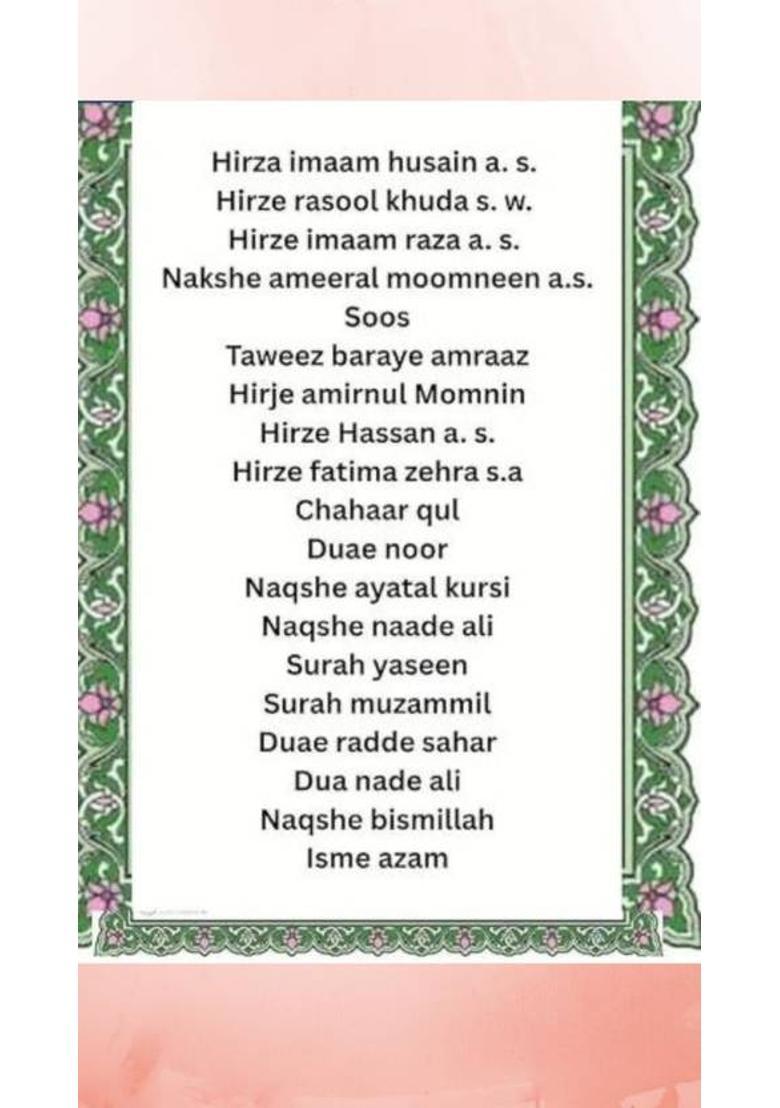 Hirza imaam husain a. s.
Hirze rasool khuda s. w.
Hirze imaam raza a. s.
Nakshe ameeral moomneen a.s.
Soos
Taweez baraye amraaz
Hirje amirnul Momnin
Hirze Hassan a. s.
Hirze fatima zehra s.a
Chahaar qul
Duae noor
Naqshe ayatal kursi
Naqshe naade ali
Surah yaseen
Surah muzammil
Duae radde sahar
Dua nade ali
Naqshe bismillah
Isme azam